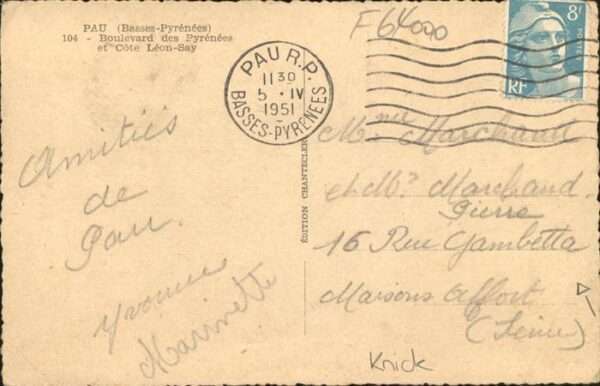 PAU (Basses-Pyrénées)
104 - Boulevard des Pyrénées
et Côte Léon-Say
F64000
PAU R.P.
11 30
5 - IV
1951
BASSES-PYRENEES
8F
POSTES
RF
Amitiés
de
Pau
Yvonne
Marinette
ÉDITION CHANTECLER
Mme Marchand
et Mr Marchand
Pierre
16 Rue Gambetta
Maisons Alfort
(Seine)
Knick